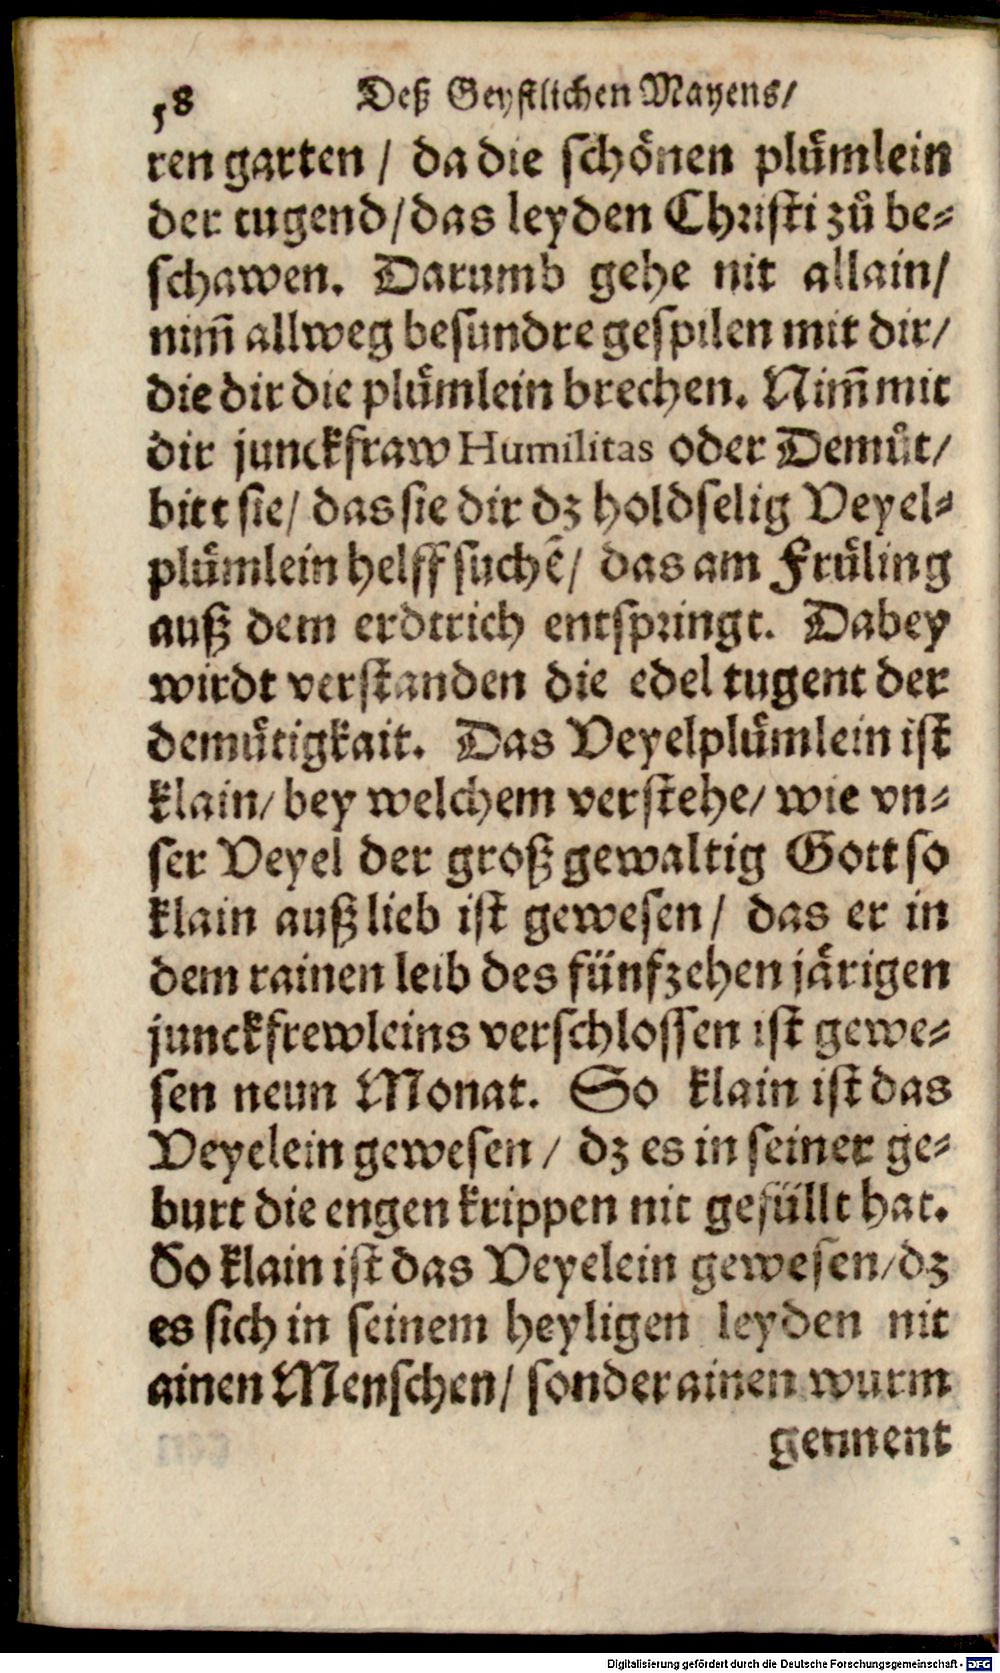 58 Deß Geyſtlichen Mayens/
ren garten / da die ſchoͤnen pluͤmlein
der tugend/das leyden Chꝛiſti zuͦ be⸗
ſchawen. Darumb gehe nit allain/
nim̃ allweg beſundre geſpilen mit dir/
die dir die pluͤmlein brechen. Nim̃ mit
dir junckfraw Humilitas oder Demuͦt/
bitt ſie/ das ſie dir dz holdſelig Veyel⸗
pluͤmlein helff ſuchẽ/ das am Fruͤling
auß dem erdtrich entſpꝛingt. Dabey
wirdt verſtanden die edel tugent der
demuͤtigkait. Das Veyelpluͤmlein iſt
klain/ bey welchem verſtehe/ wie vn⸗
ſer Veyel der groß gewaltig Gott ſo
klain auß lieb iſt geweſen/ das er in
dem rainen leib des fünfzehen jaͤrigen
junckfrewleins verſchloſſen iſt gewe⸗
ſen neun Monat. So klain iſt das
Veyelein geweſen / dz es in ſeiner ge⸗
burt die engen krippen nit gefüllt hat.
So klain iſt das Veyelein geweſen/dz
es ſich in ſeinem heyligen leyden nit
ainen Menſchen/ ſonder ainen wurm
gennent
Digitalisierung gefördert durch die Deutsche Forschungsgemeinschaft - DFG